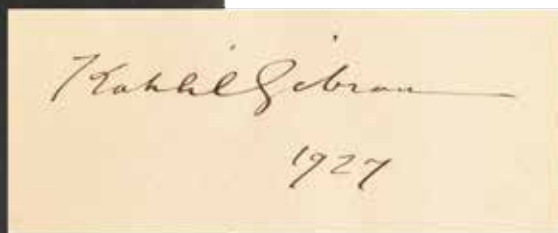 Kahlil Gibran
1927